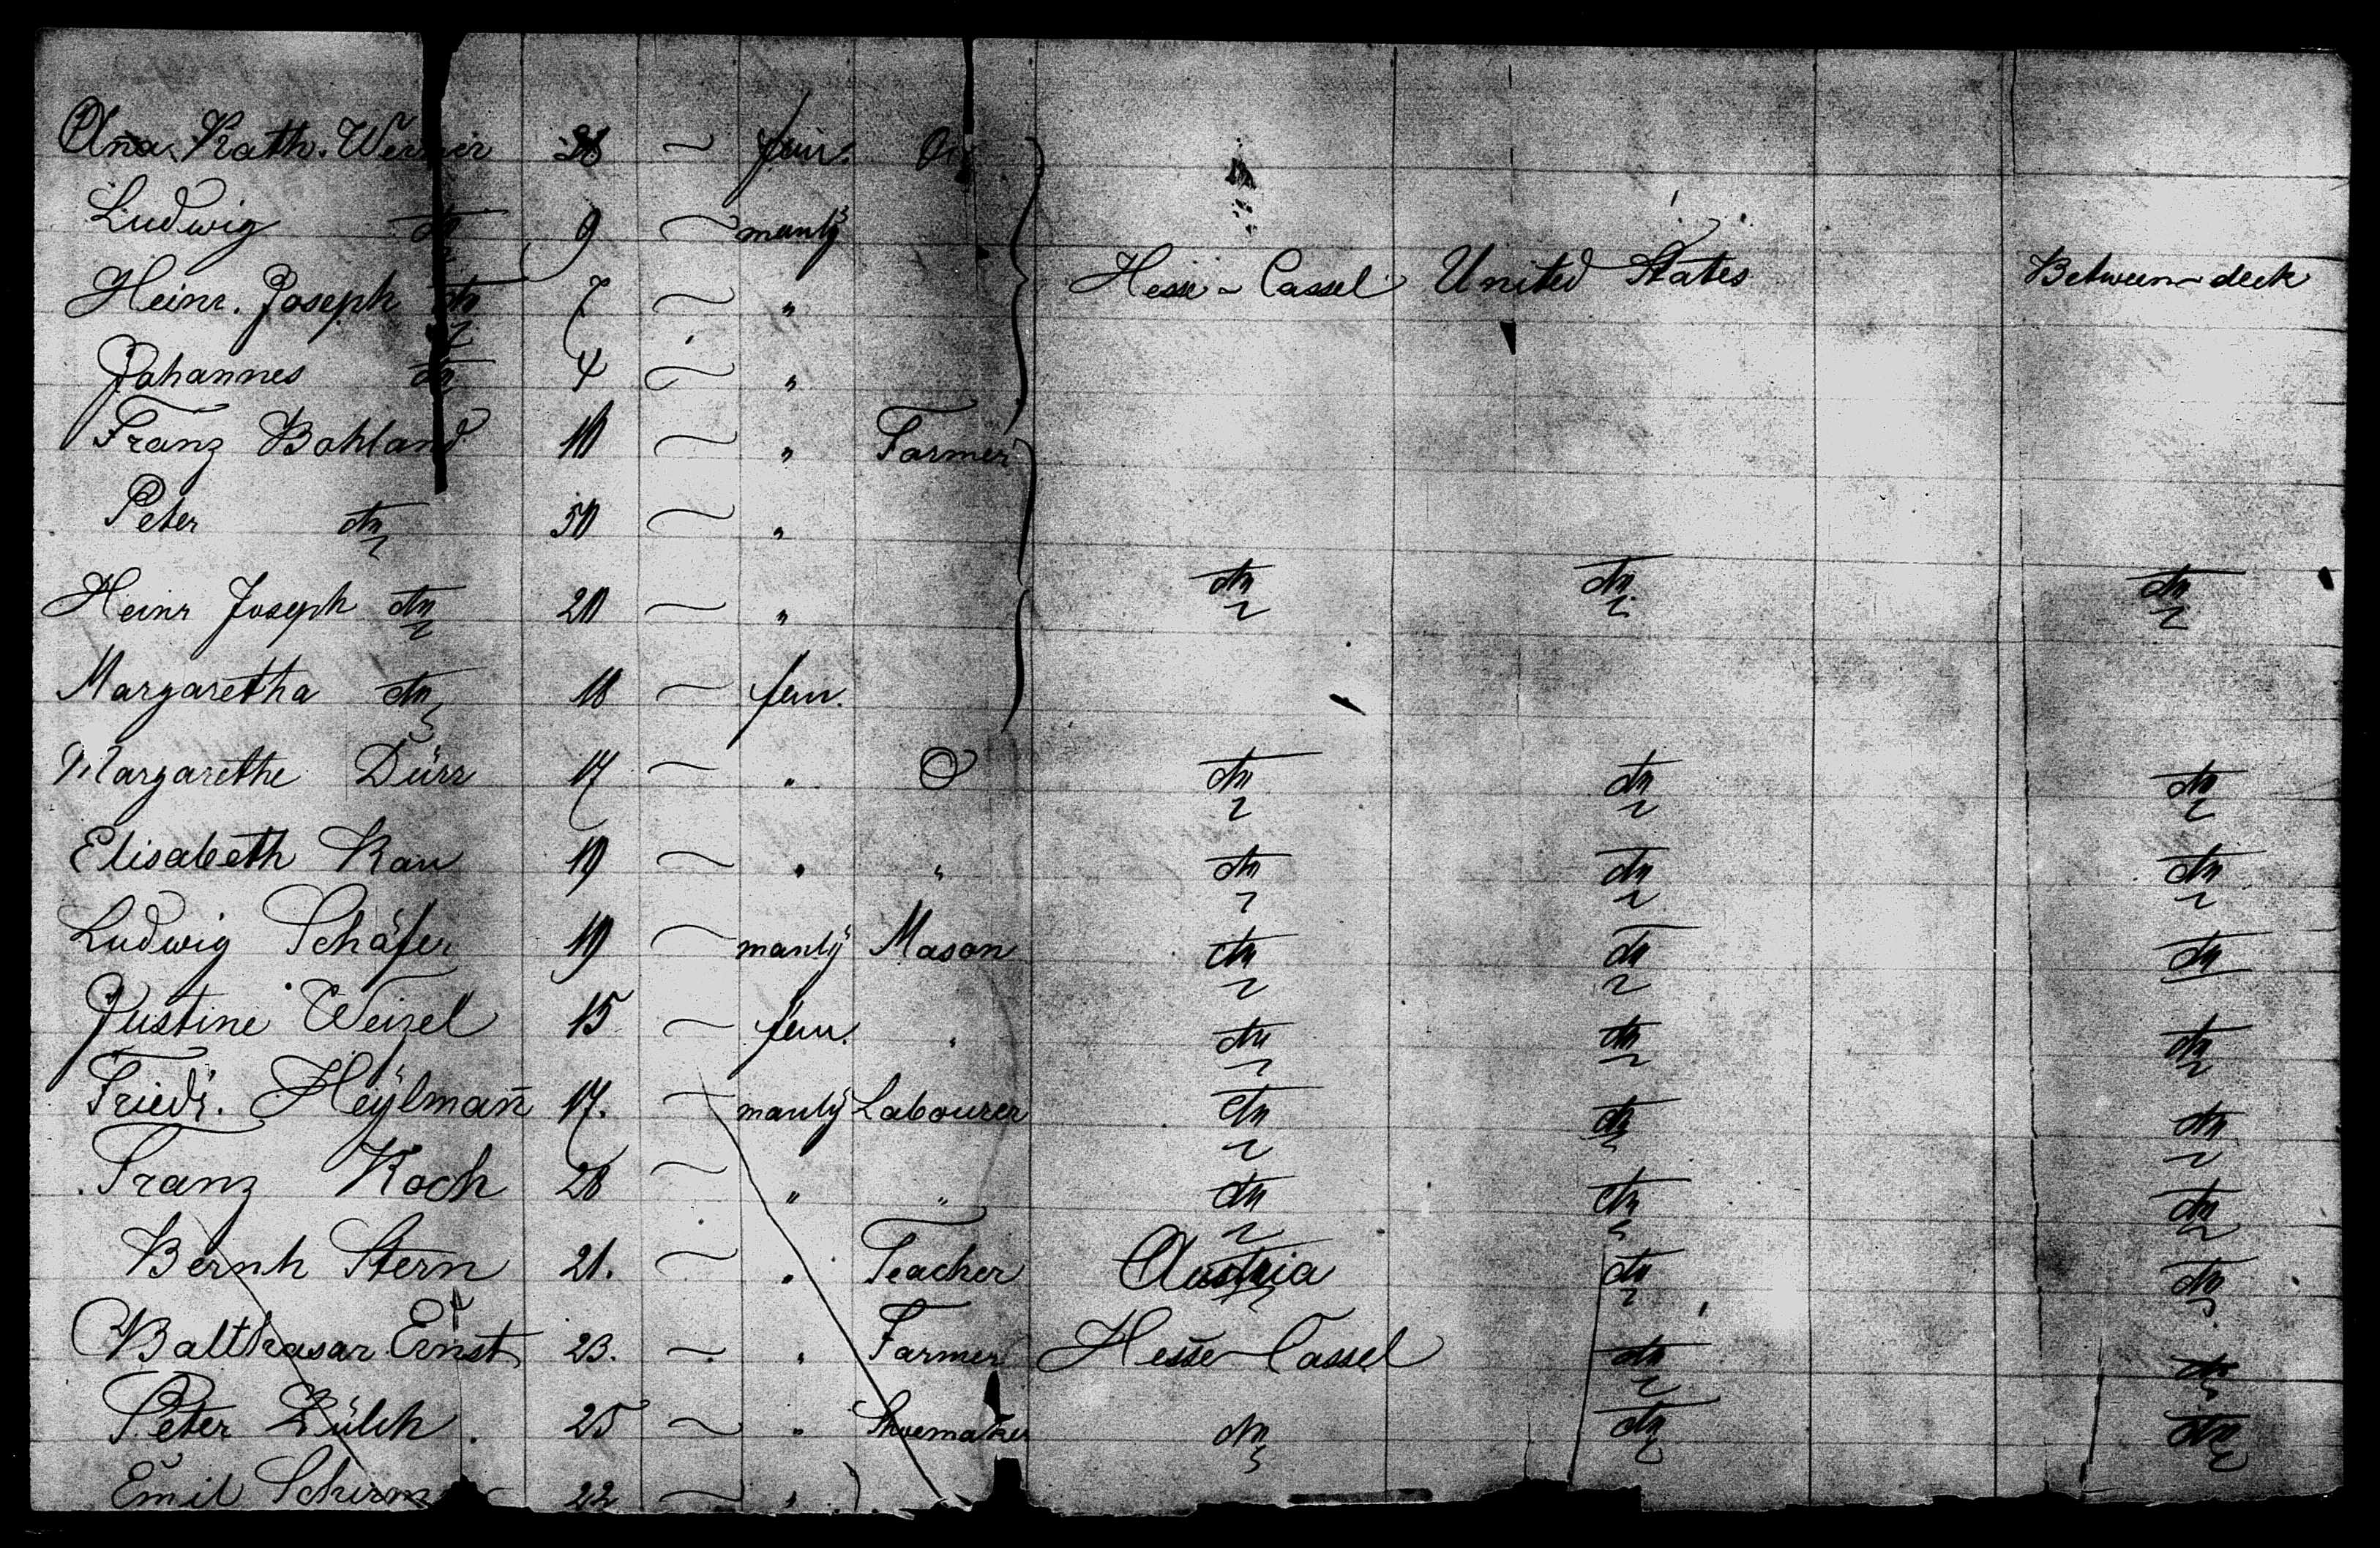 Ana Kath. Werner 28 ~ fem.
Ludwig do 9 ~ manly
Heinr. Joseph do 7 ~ " Hesse-Cassel United States Between-deck
Johannes do 4 ~ "
Franz Bohland 10 ~ " Farmer
Peter do 50 ~ "
Heinr Joseph do 20 ~ " do do do
Margaretha do 18 ~ fem.
Margarethe Dürr 17 ~ " O do do do
Elisabeth Rau 19 ~ " " do do do
Ludwig Schäfer 19 ~ manly Mason do do do
Justine Weizel 15 ~ fem. " do do do
Friedr. Heÿlman̄ 17. ~ manly Labourer do do do
Franz Koch 28 ~ " " do do do
Bernh Stern 21. ~ " Teacher Austria do do
Balthasar Ernst 23. ~ " Farmer Hesse-Cassel do do
Peter Zülch 25 ~ " Shoemaker do do do
Emil Schirm 22 ~ "